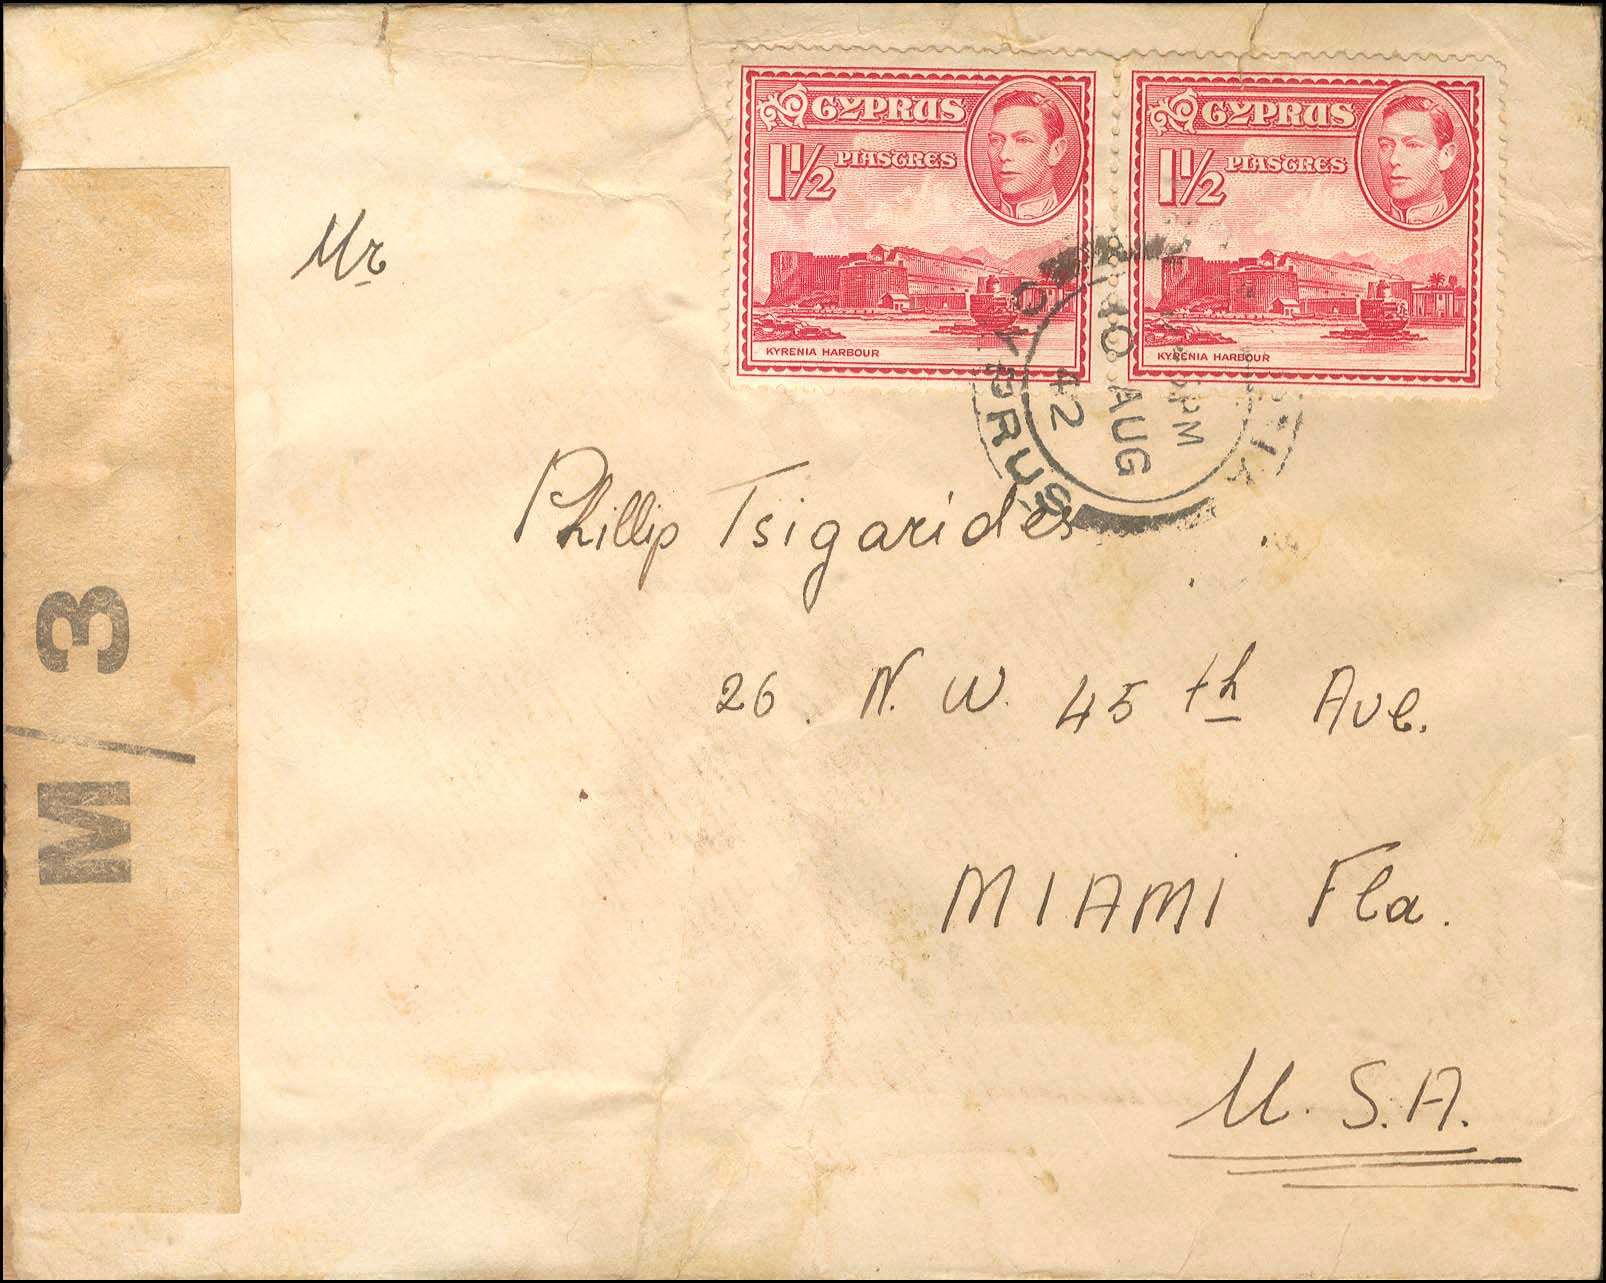 CYPRUS
1½ PIASTRES
KYRENIA HARBOUR
CYPRUS
1½ PIASTRES
KYRENIA HARBOUR
PM
10 AUG
42
CYPRUS
M/3
Mr
Phillip Tsigarides
26. N.W. 45th Ave.
MIAMI Fla.
U.S.A.